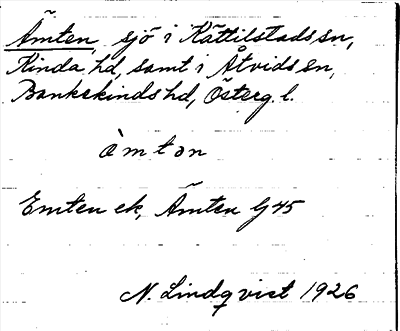 Ämten, sjö i Kättilstads sn,
Kinda hd, samt i Åtvids sn,
Bankekinds hd, Österg. l.
ὰ m t ə n
Emten ek, Ämten G 45
N. Lindqvist 1926